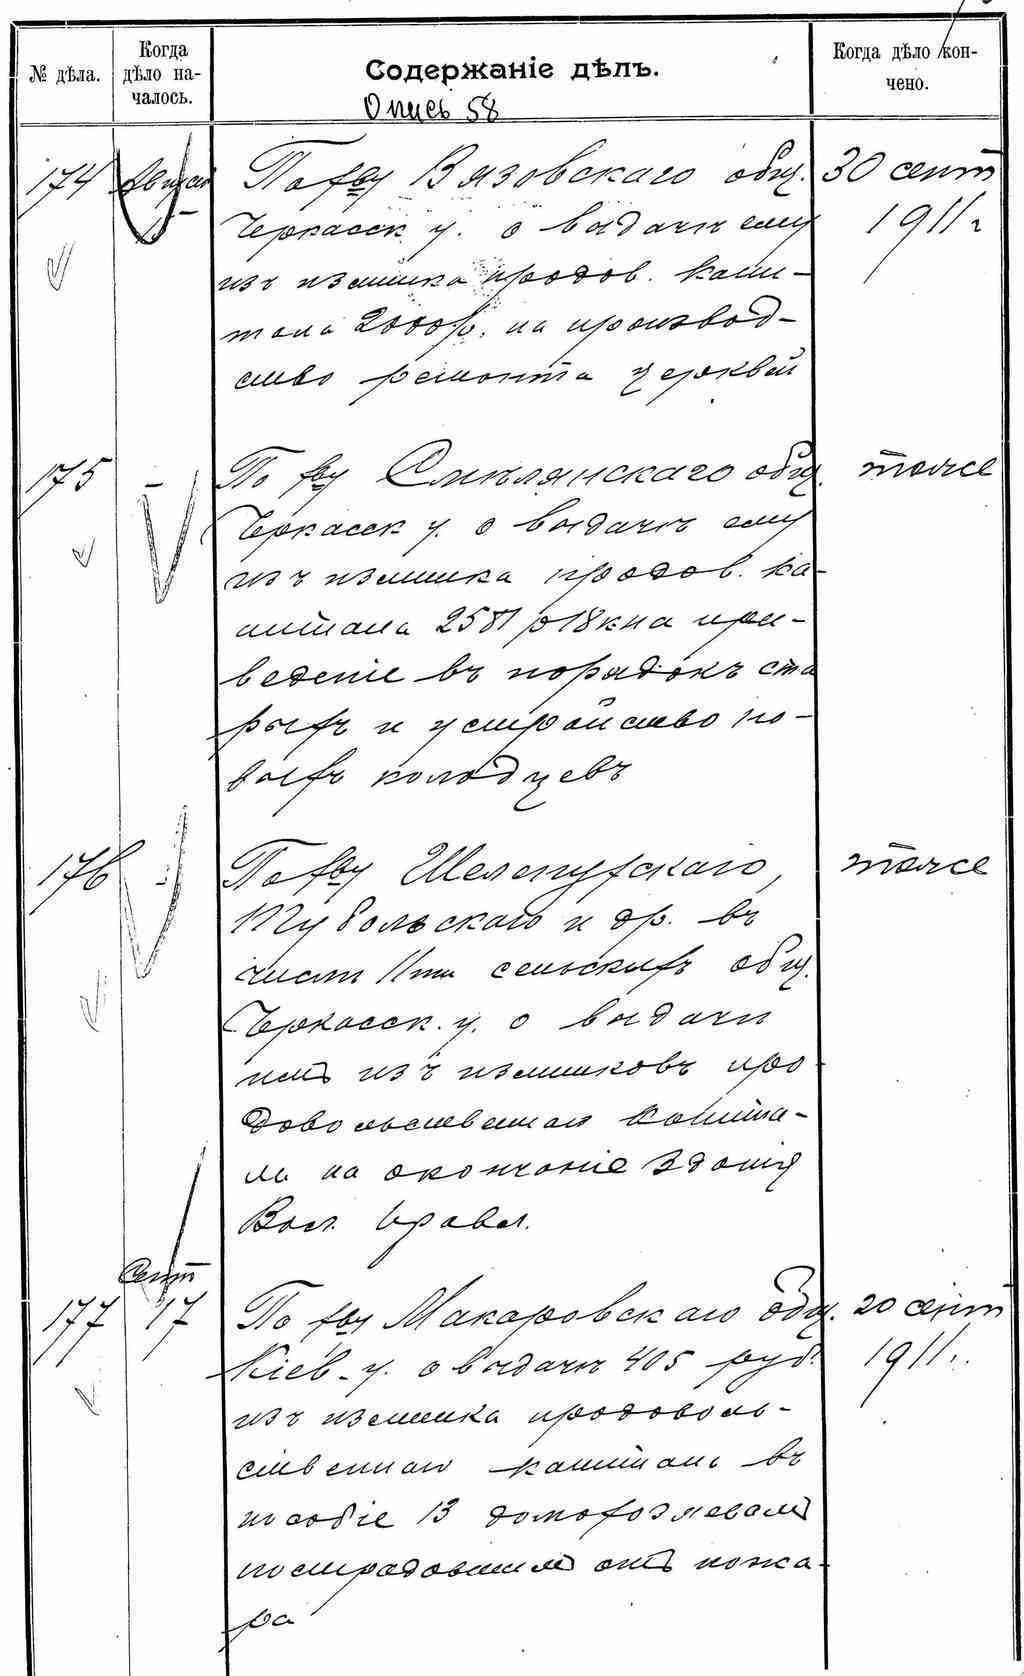 № дѣла.
Когда
дѣло на-
чалось.
Содержаніе дѣлъ.
Когда дѣло кон-
чено.
Опись 58
174
По хву Вязовскаго общ.
30 сент
Черкасск у. о выдачѣ ему
1911 г
изъ излишка продов. капи-
тала 2000 р. на производ-
ство ремонта церквей
175
По хву Смѣлянскаго общ.
тоже
Черкасск у. о выдачѣ ему
изъ излишка продов. ка-
питала 2581 р 18 к на при-
ведение въ порядокъ ста
рыхъ и устройство но-
выхъ колодцевъ
176
По хву Шелепухскаго,
тоже
Тубольскаго и др. въ
числѣ 11ти сельскихъ общ.
Черкасск. у. о выдачѣ
имъ изъ излишковъ про-
довольственнаго капита-
ла на окончаніе зданія
Вол. Правл.
Сент
177
17
По хву Макаровскаго общ.
20 сент
Кіев-у. о выдачѣ 405 руб.
1911 г.
изъ излишка продоволь-
ственнаго капитала въ
пособіе 13 домохозяевамъ
пострадавшимъ отъ пожа-
ра